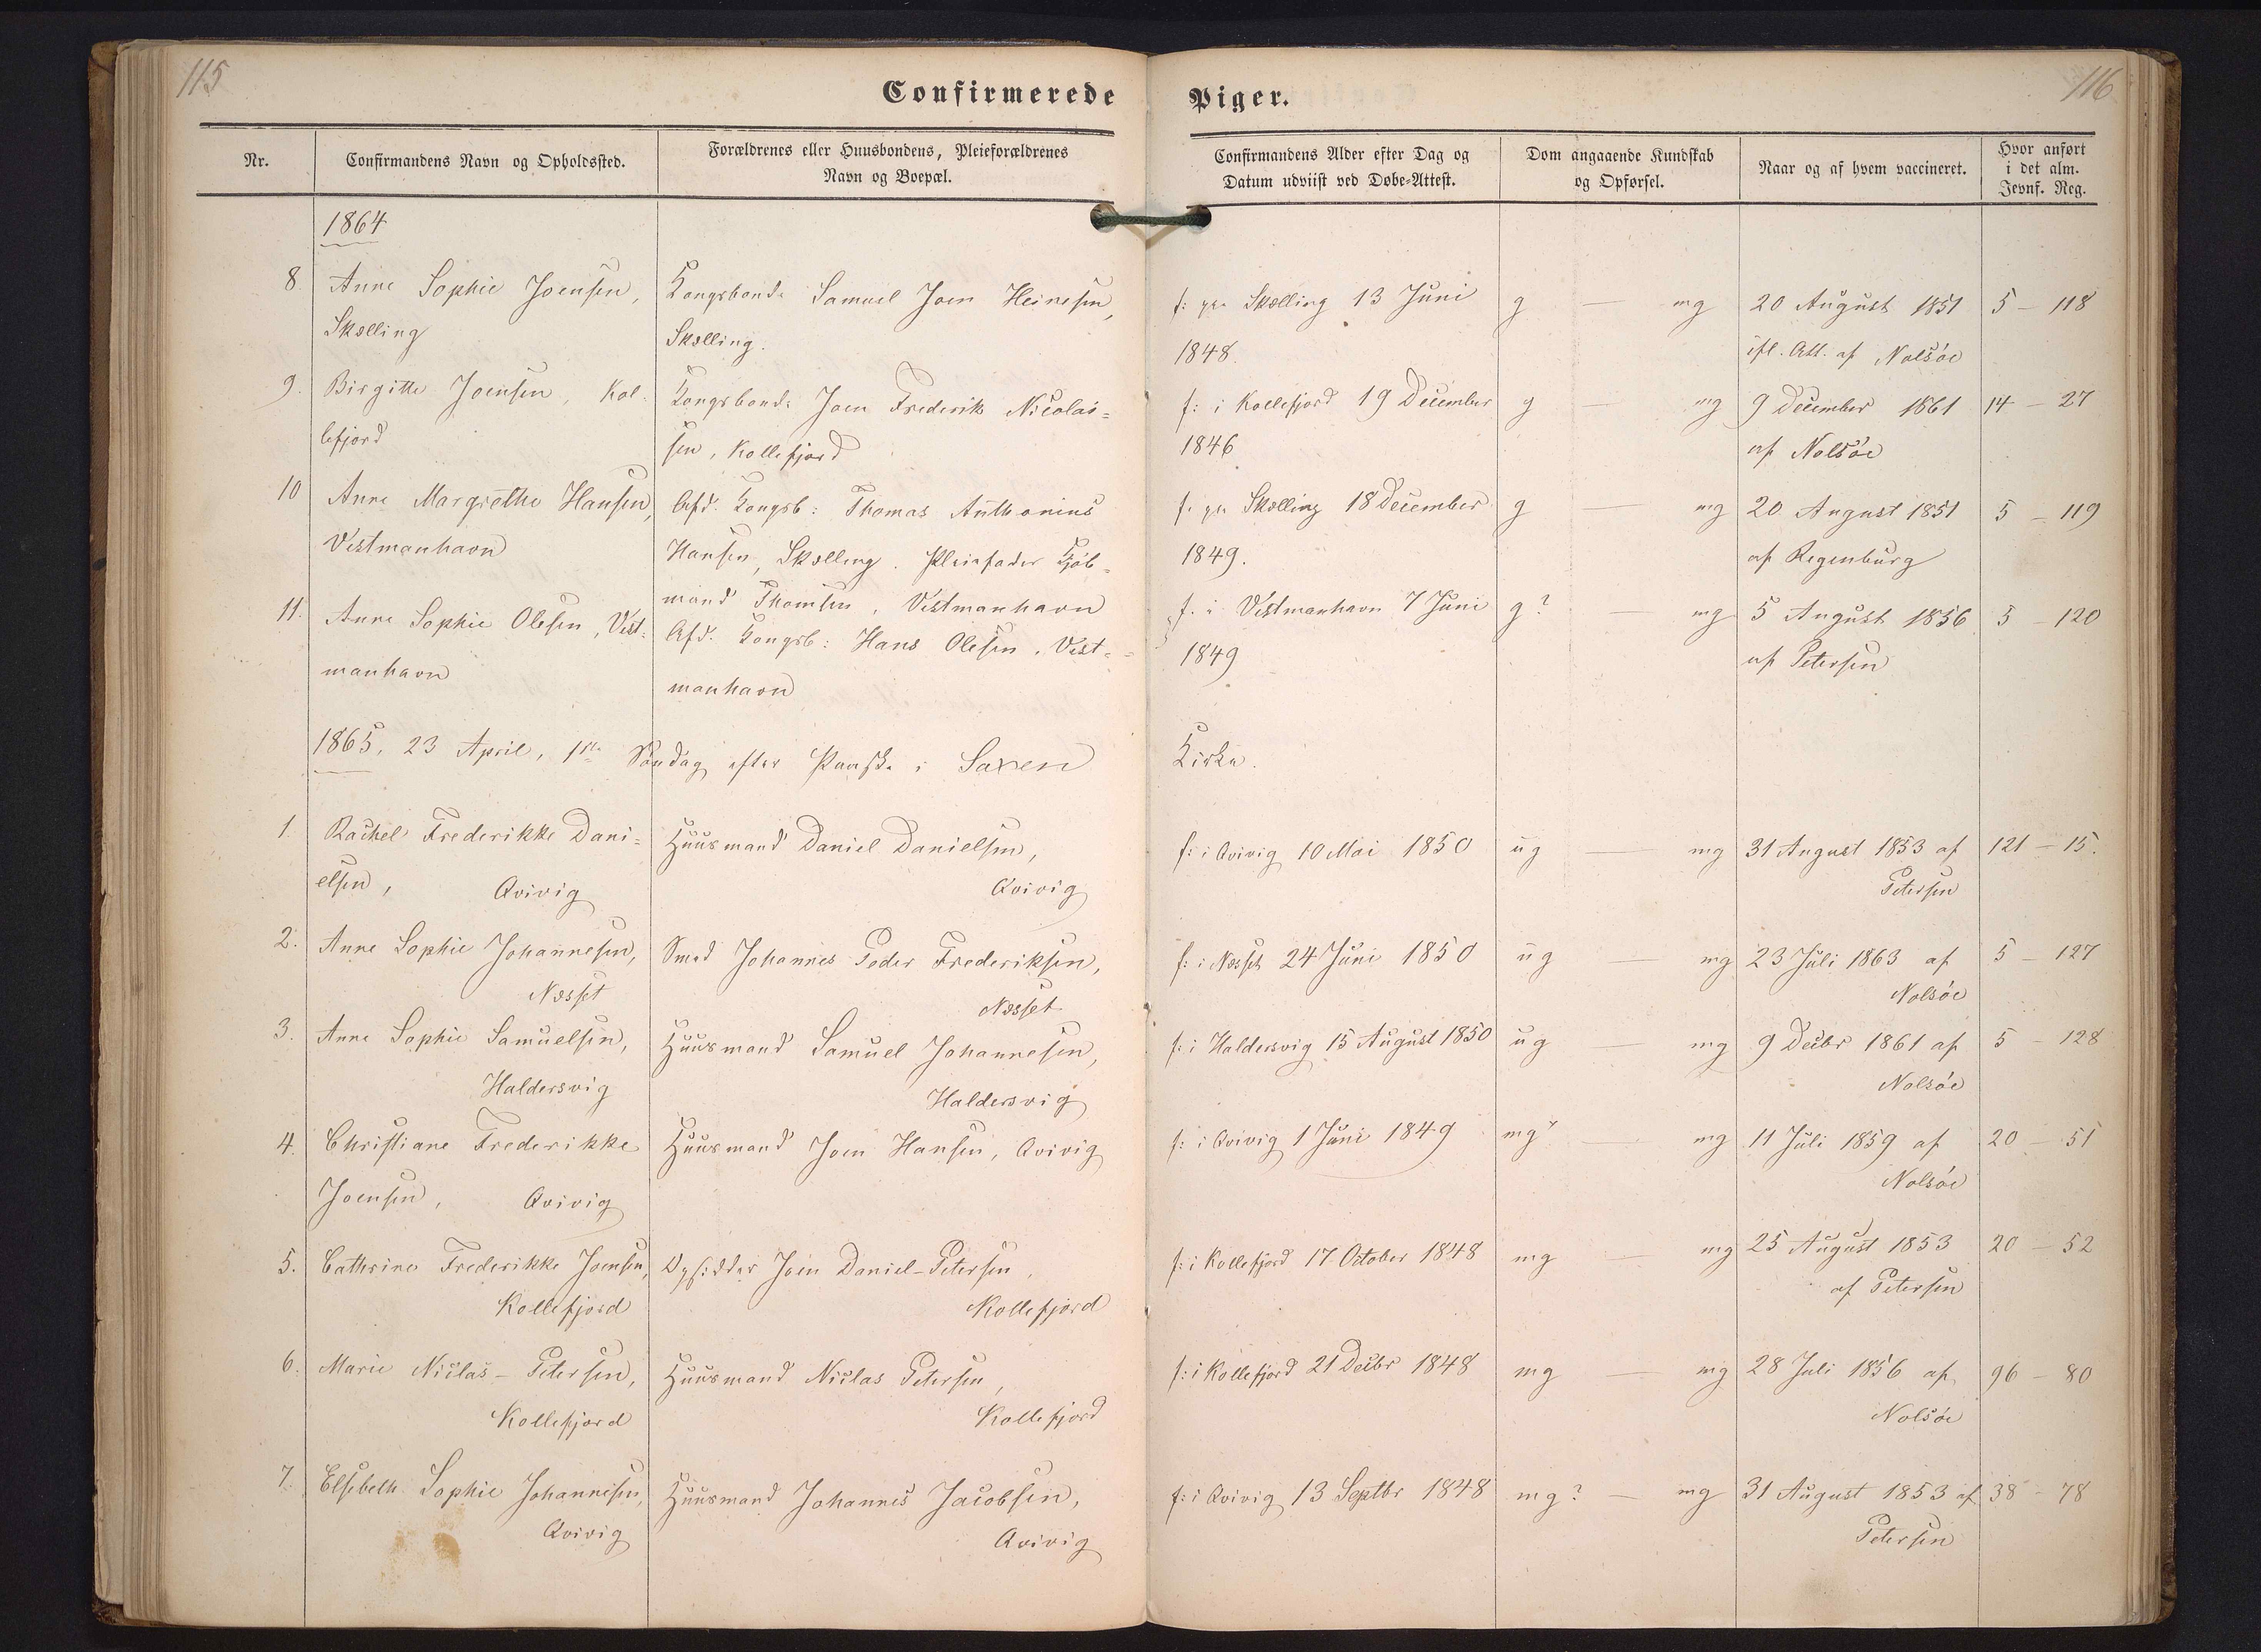 115
116
Confirmerede Piger.
Nr.
Confirmandens Navn og Opholdssted.
Forældrenes eller Huusbondens, Pleieforældrenes
Navn og Boepæl.
Confirmandens Alder efter Dag og
Datum udviist ved Døbe-Attest.
Dom angaaende Kundskab
og Opførsel.
Naar og af hvem vaccineret.
Hvor anført
i det alm.
Jevnf. Reg.
1864
8. Anne Sophie Joensen, Kongsbonde Samuel Joen Heinesen, f: paa Skælling 13 Juni g — mg 20 August 1851 5 – 118
Skælling Skælling. 1848. ifl. Att. af Nolsöe
9. Birgitte Joensen, Kol- Kongsbonde Joen Frederik Nicolai= f: i Kollefjord 19 December g — mg 9 December 1861 14 – 27
lefjord sen, Kollefjord 1846 af Nolsöe
10 Anne Margrethe Hansen, Afd. Kongsb: Thomas Anthonius f. paa Skælling 18 December g — mg 20 August 1851 5 – 119
Vestmanhavn Hansen, Skælling. Pleiefader Kjöb= 1849. af Regenburg
mand Thomsen, Vestmanhavn
11. Anne Sophie Olesen, Vest= Afd. Kongsb: Hans Olesen, Vest= f. i Vestmanhavn 7 Juni g? — mg 5 August 1856 5 – 120
manhavn manhavn 1849 af Petersen
1865, 23 April, 1ste Söndag efter Paaske i Saxen Kirke.
1. Rachel Frederikke Dani= Huusmand Daniel Danielsen, f: i Qvivig 10 Mai 1850 ug — mg 31 August 1853 af 121 – 15.
elsen, Qvivig Qvivig Petersen
2. Anne Sophie Johannesen, Smed Johannes Peder Frederiksen, f: i Næsset 24 Juni 1850 ug — mg 23 Juli 1863 af 5 – 127
Næsset Næsset Nolsöe
3. Anne Sophie Samuelsen, Huusmand Samuel Johannesen, f: i Haldersvig 15 August 1850 ug — mg 9 Decbr 1861 af 5 – 128
Haldersvig Haldersvig Nolsöe
4. Christiane Frederikke Huusmand Joen Hansen, Qvivig f: i Qvivig 1 Juni 1849 mg — mg 11 Juli 1859 af 20 – 51
Joensen, Qvivig Nolsöe
5. Cathrine Frederikke Joensen, Opsidder Joen Daniel-Petersen, f: i Kollefjord 17 October 1848 mg — mg 25 August 1853 20 – 52
Kollefjord Kollefjord af Petersen
6. Marie Niclas-Petersen, Huusmand Niclas Petersen, f: i Kollefjord 21 Decbr 1848 mg — mg 28 Juli 1856 af 96 – 80
Kollefjord Kollefjord Nolsöe
7. Elsebeth Sophie Johannesen, Huusmand Johannes Jacobsen, f: i Qvivig 13 Septbr 1848 mg? — mg 31 August 1853 af 38 – 78
Qvivig Qvivig Petersen